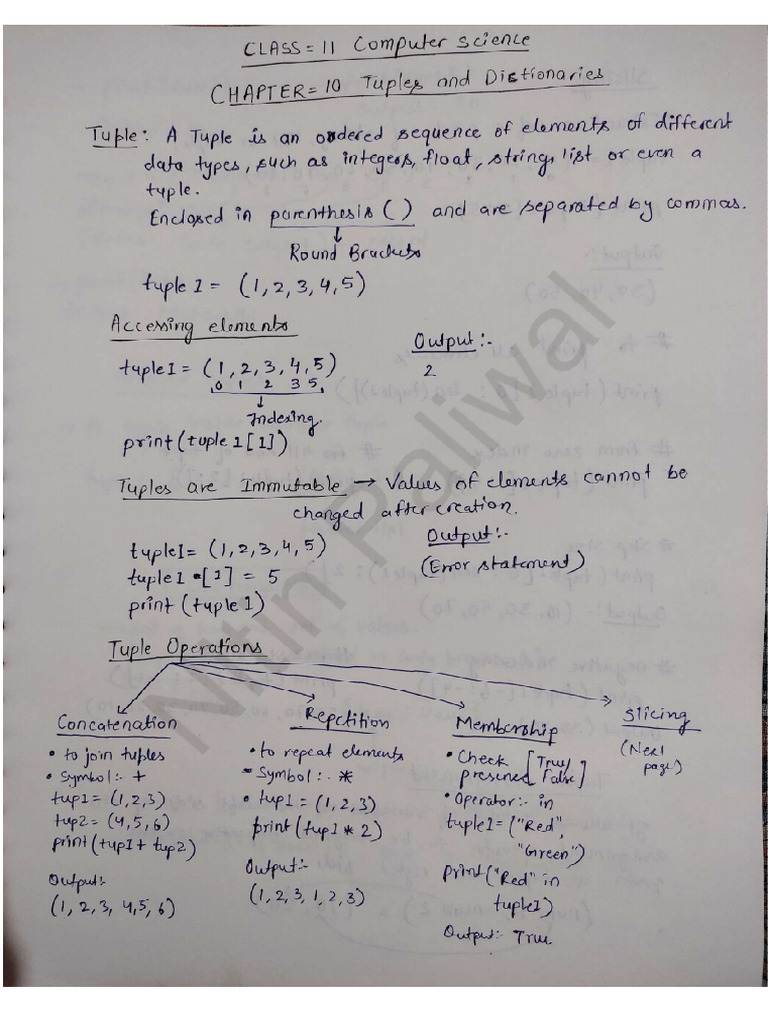 CLASS = 11 Computer Science
CHAPTER = 10 Tuples and Dictionaries
Tuple: A Tuple is an ordered sequence of elements of different
data types, such as integers, float, string, list or even a
tuple.
Enclosed in parenthesis ( ) and are separated by commas.
Round Brackets
tuple 1 = (1, 2, 3, 4, 5)
Accessing elements
tuple1 = (1, 2, 3, 4, 5)
0 1 2 3 5
Indexing.
print(tuple 1 [1])
Output:-
2
Tuples are Immutable → Values of elements cannot be
changed after creation.
tuple1 = (1, 2, 3, 4, 5)
tuple1 [1] = 5
print (tuple 1)
Output:-
(Error statement)
Tuple Operations
Concatenation
• to join tuples
• Symbol:- +
tup1 = (1, 2, 3)
tup2 = (4, 5, 6)
print(tup1 + tup2)
Output:
(1, 2, 3, 4, 5, 6)
Repetition
• to repeat elements
• Symbol:- *
• tup1 = (1, 2, 3)
print(tup1 * 2)
Output:-
(1, 2, 3, 1, 2, 3)
Membership
• Check [True/
presened False]
• Operator:- in
tuple1= ("Red",
"Green")
print("Red" in
tuple1)
Output:- True
Slicing
(Next
page)
Nitin Paliwal